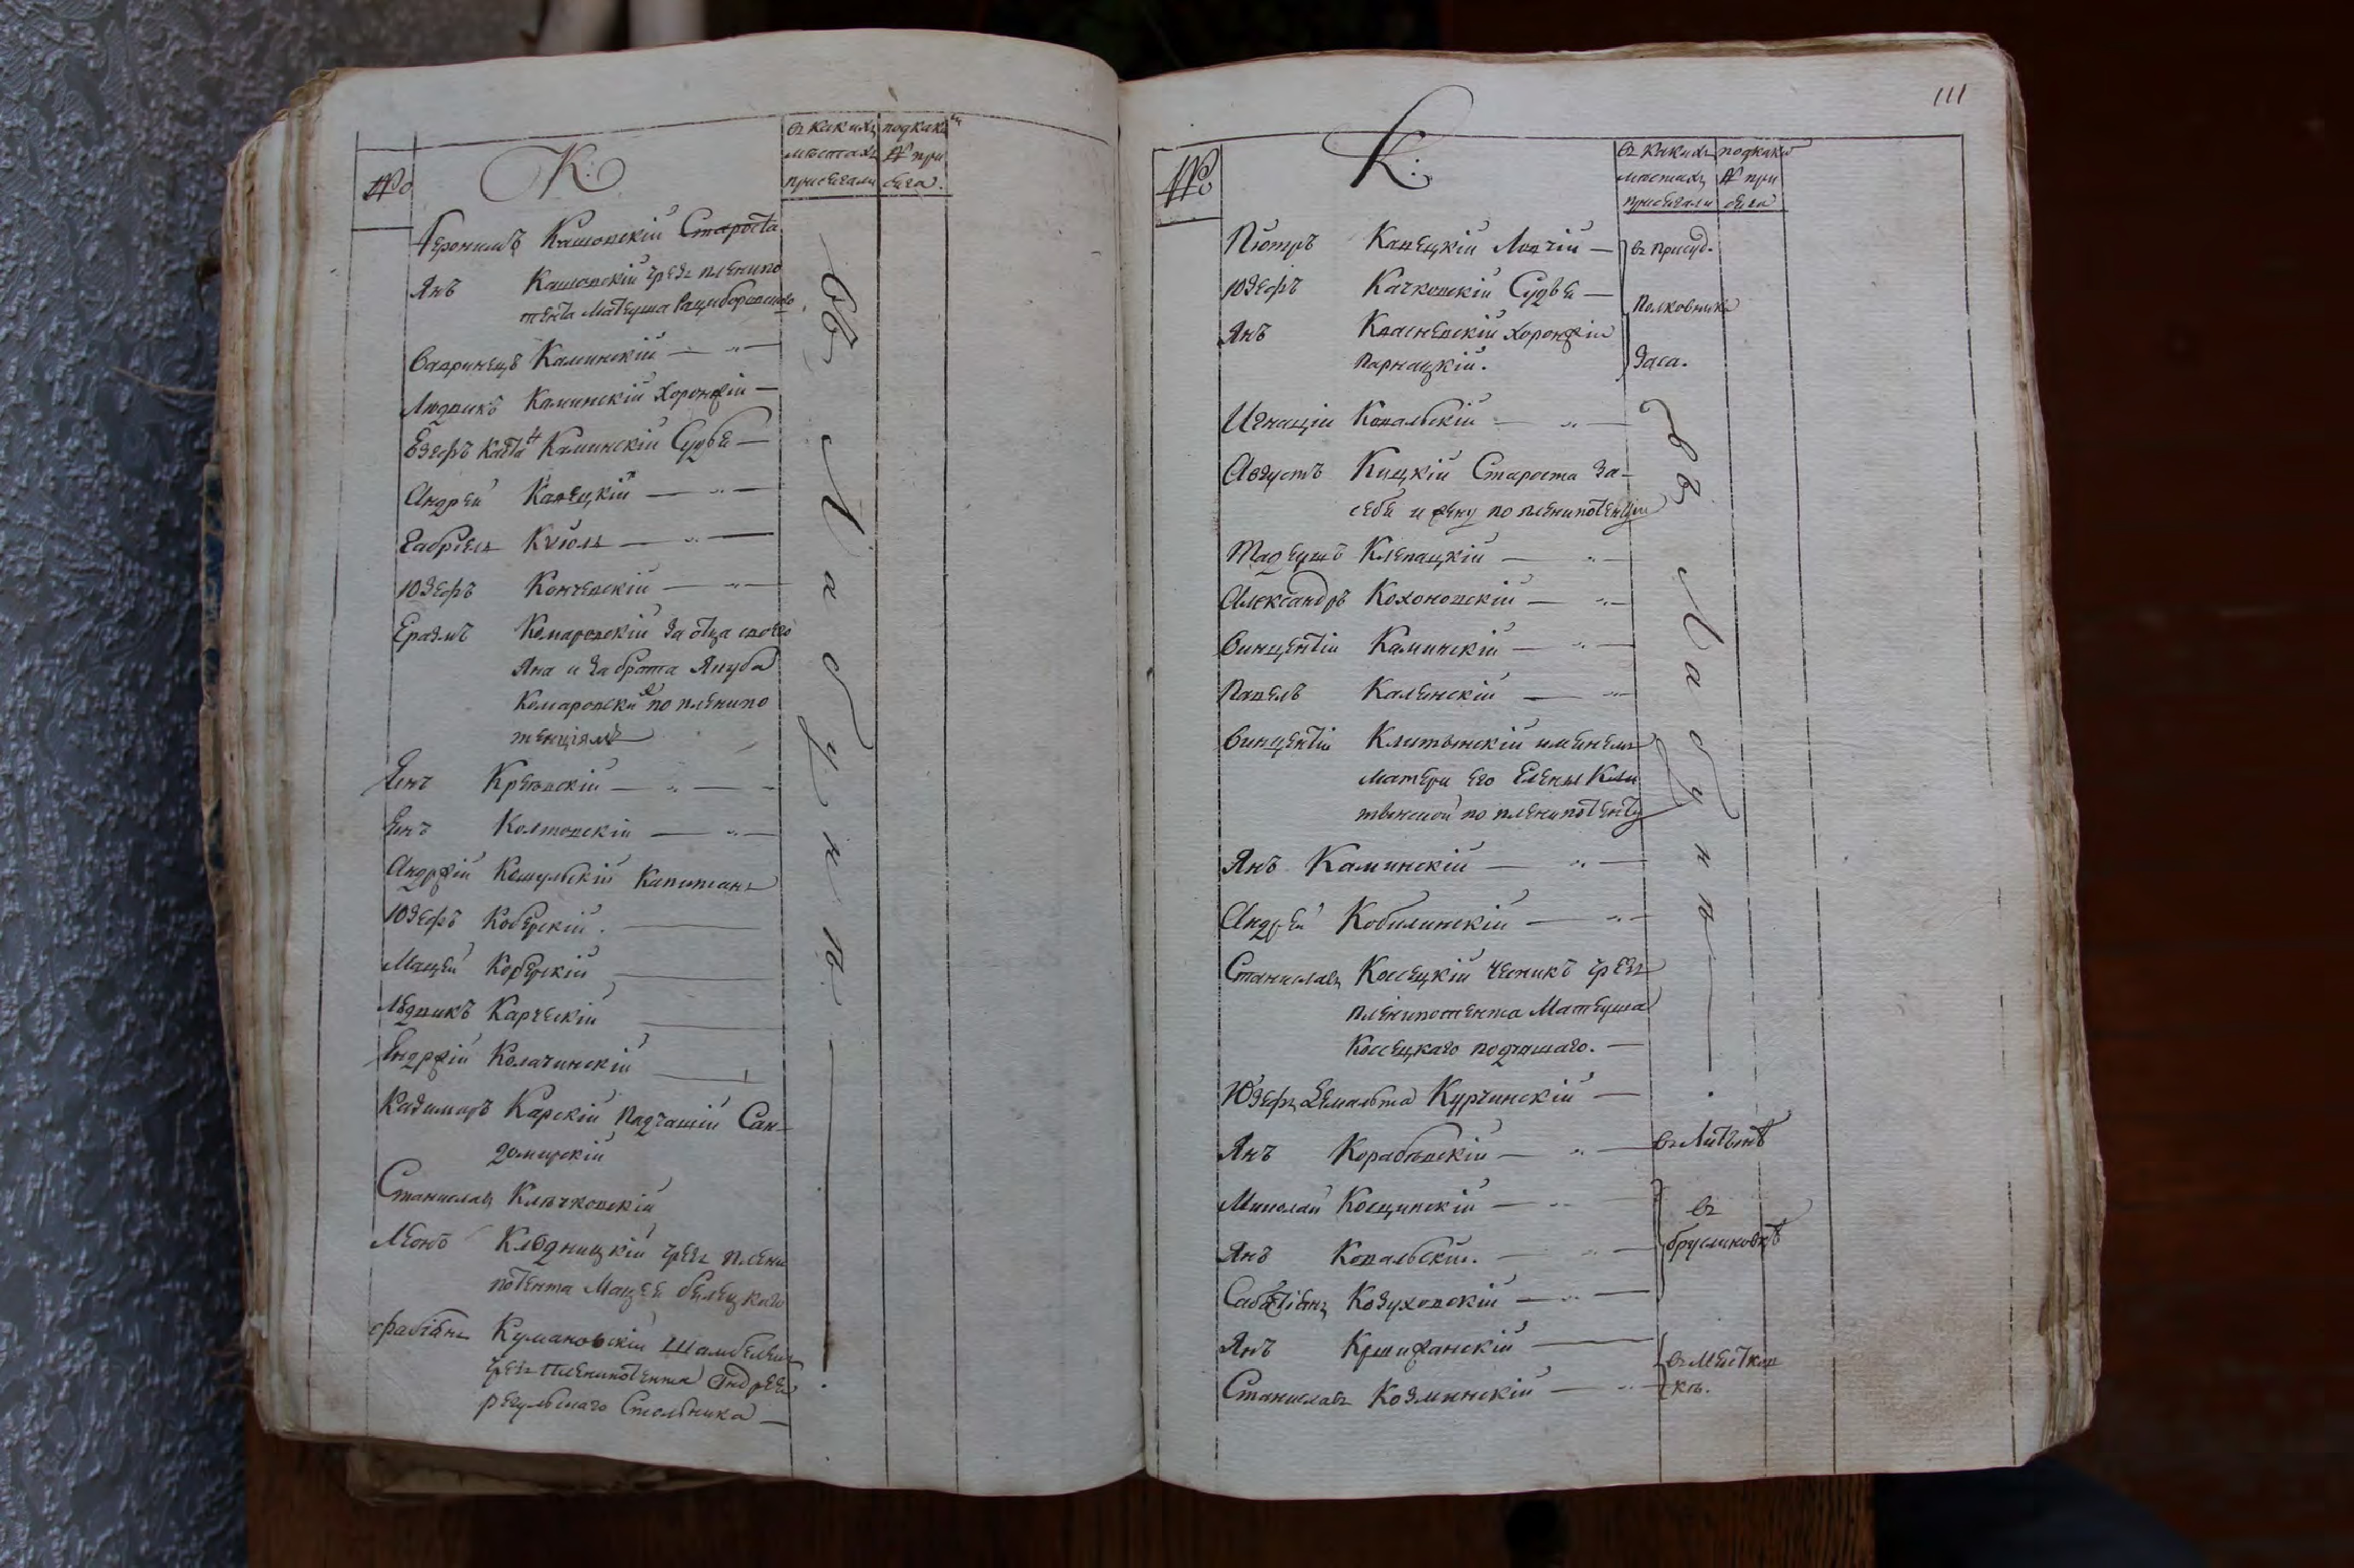 №
К:
въ какихъ
мѣстахъ
присягали
подкакимъ
№ при
сяга.
Геронимъ Кашовскій Староста
Янъ Кашовскій чрезъ пленипо
тента Матеуша Рацыборовскаго
Вавринецъ Каминскій — „ —
Людвикъ Каминскій Хоронжій —
Каминскій Судья —
Андрей Канецкій — „ —
Габріель — „ —
Юзефъ Кончевскій — „ —
Еразмъ Комаровскій за отца своего
Яна и за брата Якуба
Комаровскихъ по пленипо
тенціямъ
Янъ — „ —
Янъ Колтовскій — „ —
Андржій Кошульскій Капитанъ
Юзефъ Коберскій. —
Мацей Коберскій —
Людвикъ Карческій —
Андржій Колачинскій —
Казимиръ Карскій Подчашій Сан-
домирскій
Станиславъ Клечковскій
Леонъ Клодницкій чрезъ плени
потента Мацея Белецкаго
Фабіянъ Кумановскій Шамбелянъ
чрезъ пленипотента Андрея
Регульскаго Стольника —
въ Лабунѣ
111
№
К:
въ какихъ
мѣстахъ
присягали
подкакимъ
№ при
сяга
Піотръ Канецкій Ловчій —
въ присуд.
Юзефъ Качковскій Судья —
Полковника
Янъ Хоронжій
Парнацкій.
Заса.
Игнацій Ковальскій — „ —
Августъ Кицкій Староста за-
себя и жену по пленипотенціи
Тадеушъ Клепацкій — „ —
Александръ Кохоновскій — „ —
Винцентій Каминскій — „ —
Павелъ Каминскій — „ —
Винцентій Клитынскій именемъ
матери его Елены Кли
тынской по пленипотенту
Янъ Каминскій — „ —
Андрей Кобилинскій — „ —
Станиславъ Коссецкій Чесникъ чрезъ
пленипотента Матеуша
Коссецкаго подчашаго. —
Юзефъ Курчинскій —
въ Лабунѣ
Янъ Корабѣвскій — „ —
въ Литынѣ
Миколай Косцинскій — „
въ
Янъ Ковальскій. — „ —
Бруслиновкѣ
Козуховскій — „ —
Янъ Кршижанскій —
въ Местков
Станиславъ Козминскій — „ —
кѣ.